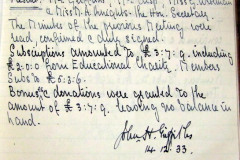 & Miss M. A. Knights. the Hon. Secretary
The Minutes of the previous Meeting were
read, confirmed & duly signed.
Subscriptions amounted to £3:7:9, including
£2:0:0 from Educational Charity. Members
Subs to £5:3:6.
Bonus & donations were granted to the
amount of £3:7:9, leaving no balance in
hand.
John H Griffiths
14.12.33.